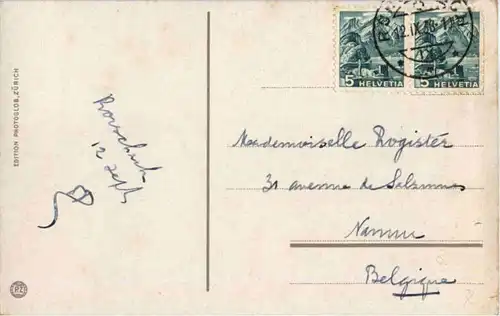 EDITION PHOTOGLOB, ZÜRICH
Rorschach
12 sept
5 HELVETIA
5 HELVETIA
12.IX.
Mademoiselle Rogister
31 avenue de Salzinnes
Namur
Belgique
PZ